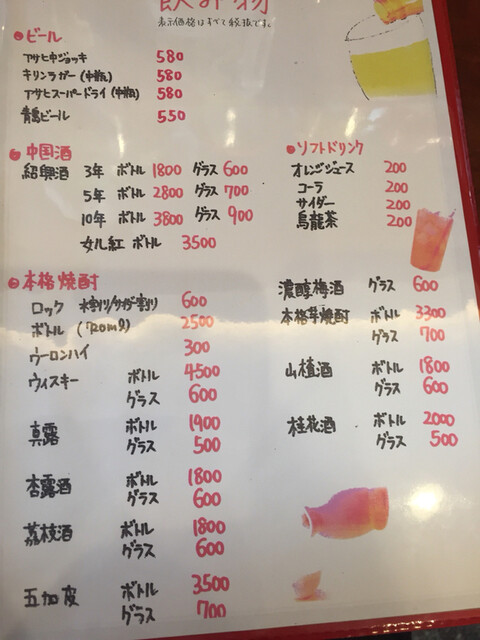 飲み物
表示価格はすべて税抜です。
ビール
アサヒ中ジョッキ 580
キリンラガー(中瓶) 580
アサヒスーパードライ(中瓶) 580
青島ビール 550
中国酒
紹興酒 3年 ボトル 1800 グラス 600
5年 ボトル 2800 グラス 700
10年 ボトル 3800 グラス 900
女儿紅 ボトル 3500
ソフトドリンク
オレンジジュース 200
コーラ 200
サイダー 200
烏龍茶 200
本格焼酎
ロック 水割り/サイダー割り 600
ボトル (720ml) 2500
ウーロンハイ 300
ウィスキー ボトル 4500
グラス 600
真露 ボトル 1900
グラス 500
杏露酒 ボトル 1800
グラス 600
荔枝酒 ボトル 1800
グラス 600
五加皮 ボトル 3500
グラス 700
濃醇梅酒 グラス 600
本格芋焼酎 ボトル 3300
グラス 700
山楂酒 ボトル 1800
グラス 600
桂花酒 ボトル 2000
グラス 500